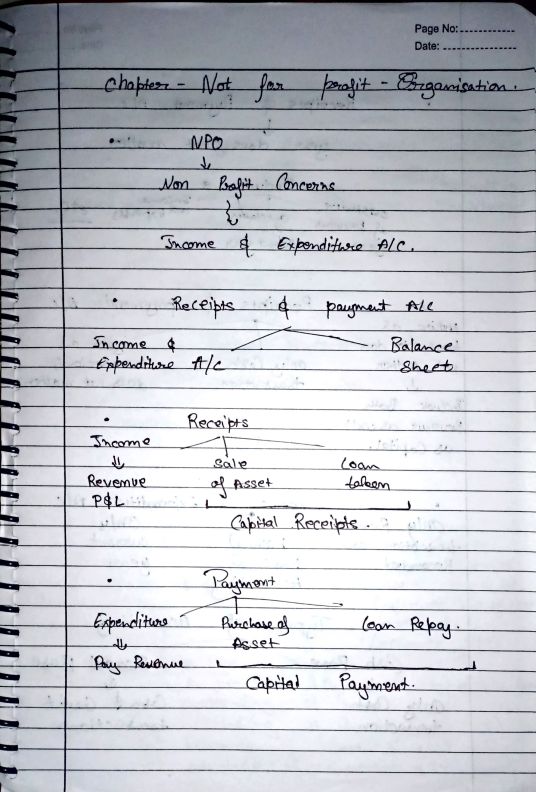 Page No:
Date:
Chapter - Not for profit - Organisation.
• NPO
↓
Non Profit Concerns
Income & Expenditure A/C.
• Receipts & payment A/C
Income &
Expenditure A/c
Balance
Sheet
• Receipts
Income
⇓
Revenue
P&L
Sale
of Asset
Loan
taken
Capital Receipts.
• Payment
Expenditure
⇓
Pay Revenue
Purchase of
Asset
Loan Repay.
Capital Payment.